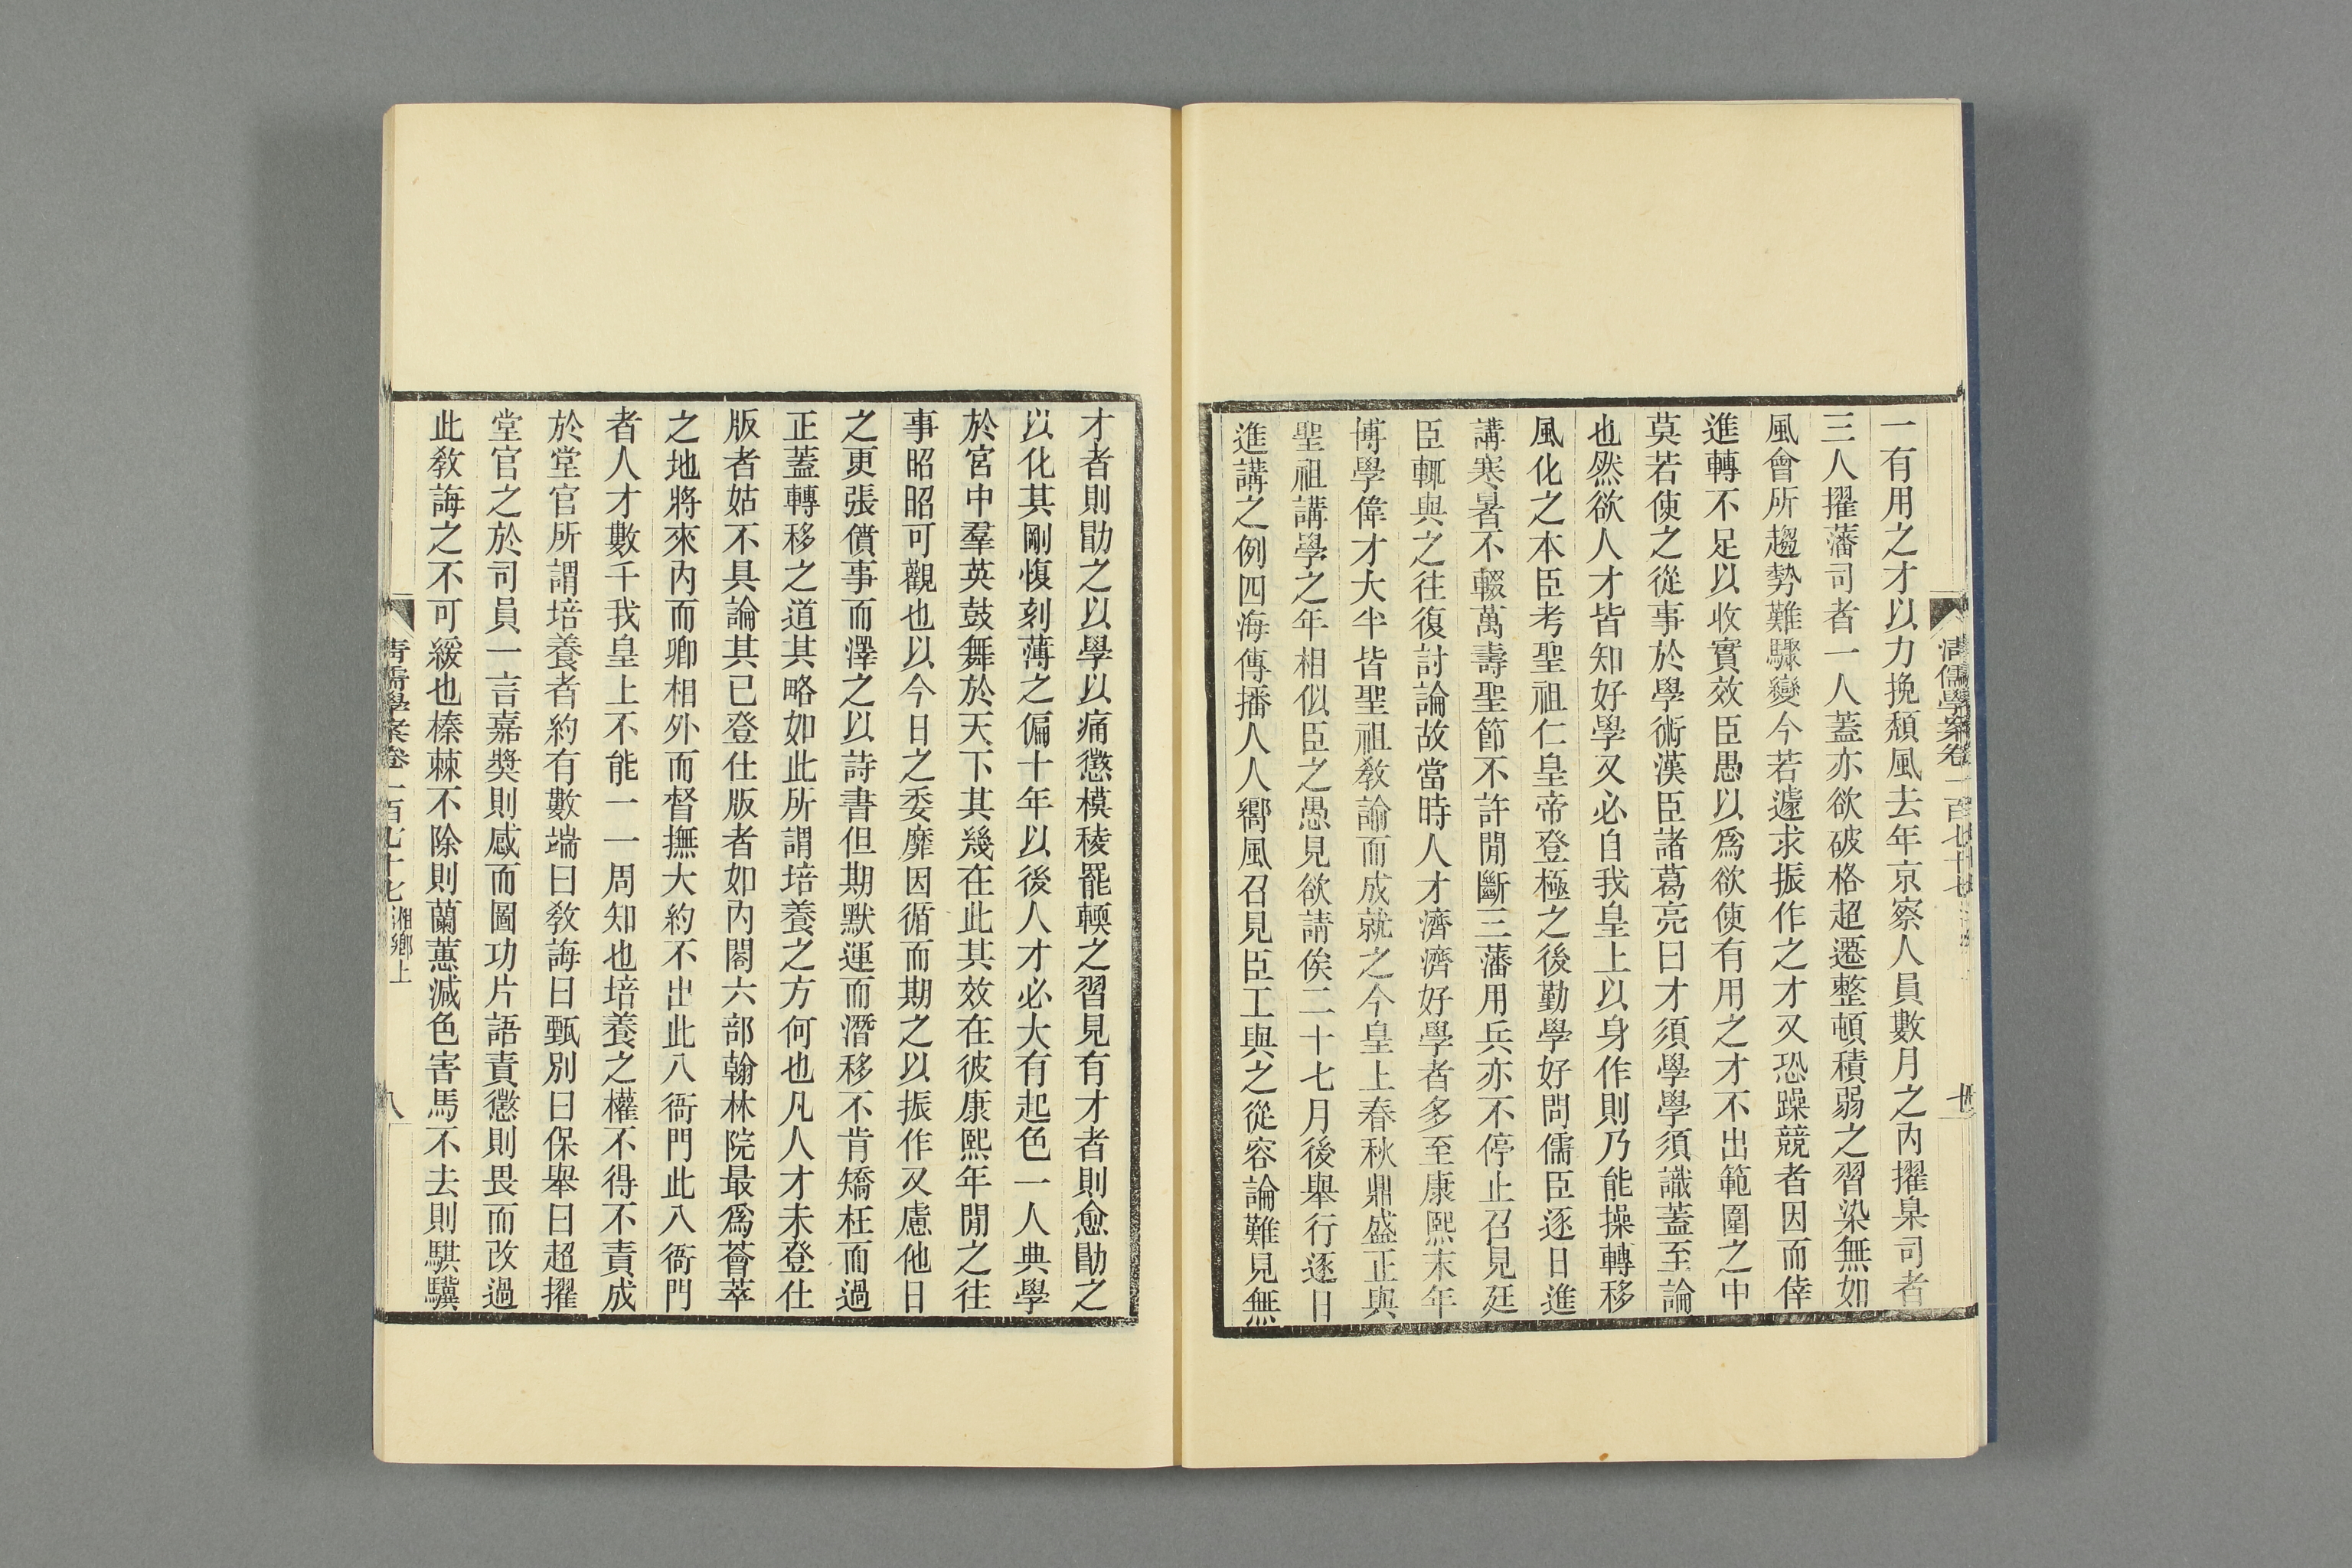 一有用之才以力挽頹風去年京察人員數月之內擢臬司者
三人擢藩司者一人蓋亦欲破格超遷整頓積弱之習染無如
風會所趨勢難驟變今若遽求振作之才又恐躁競者因而倖
進轉不足以收實效臣愚以爲欲使有用之才不出範圍之中
莫若使之從事於學術漢臣諸葛亮曰才須學學須識蓋至論
也然欲人才皆知好學又必自我皇上以身作則乃能操轉移
風化之本臣考聖祖仁皇帝登極之後勤學好問儒臣逐日進
講寒暑不輟萬壽聖節不許閒斷三藩用兵亦不停止召見廷
臣輒與之往復討論故當時人才濟濟好學者多至康熙末年
博學偉才大半皆聖祖敎諭而成就之今皇上春秋鼎盛正與
聖祖講學之年相似臣之愚見欲請俟二十七月後舉行逐日
進講之例四海傳播人人嚮風召見臣工與之從容論難見無
才者則勖之以學以痛懲模稜罷輭之習見有才者則愈勖之
以化其剛愎刻薄之偏十年以後人才必大有起色一人典學
於宮中羣英鼓舞於天下其幾在此其效在彼康熙年閒之往
事昭昭可觀也以今日之委靡因循而期之以振作又慮他日
之更張僨事而澤之以詩書但期默運而潛移不肯矯枉而過
正蓋轉移之道其略如此所謂培養之方何也凡人才未登仕
版者姑不具論其已登仕版者如內閣六部翰林院最爲薈萃
之地將來內而卿相外而督撫大約不出此八衙門此八衙門
者人才數千我皇上不能一一周知也培養之權不得不責成
於堂官所謂培養者約有數端曰敎誨曰甄別曰保舉曰超擢
堂官之於司員一言嘉獎則感而圖功片語責懲則畏而改過
此敎誨之不可緩也榛棘不除則蘭蕙減色害馬不去則騏驥
清儒學案卷一百七十七 湘鄉上
八